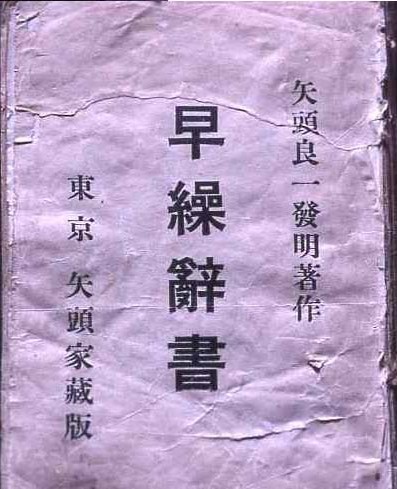 矢頭良一發明著作
早繰辭書
東京 矢頭家藏版